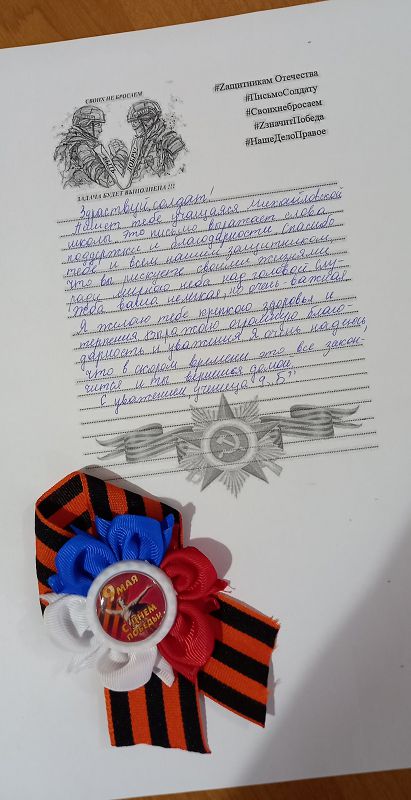 СВОИХ НЕ БРОСАЕМ
ЗАДАЧА БУДЕТ ВЫПОЛНЕНА !!!
#Zащитникам Отечества
#ПисьмоСолдату
#Своихнебросаем
#ZзначитПобеда
#НашеДелоПравое
Здраствуй солдат!
Пишет тебе учащаяся Михайловской
школы. Это письмо выражает слова
поддержки и благодарности. Спасибо
тебе и всем нашим защитникам,
что вы рискуете своими жизнями
ради мирного неба над головой. Слу-
жба ваша нелёгкая, но очень важная.
Я желаю тебе крепкого здоровья и
терпения. Выражаю огромную благо-
дарность и уважения. Я очень надеюсь,
что в скором времени это все закон-
чится и ты вернешься домой.
С уважением ученица 9 "Б"
9 МАЯ
С ДНЕМ
ПОБЕДЫ!